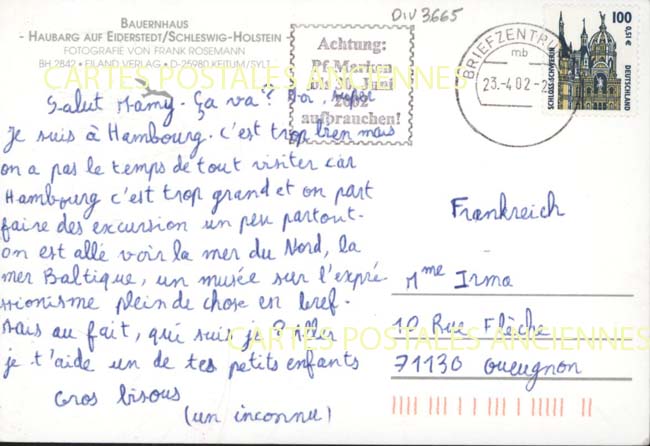 DIV 3665
BAUERNHAUS
- HAUBARG AUF EIDERSTEDT/SCHLESWIG-HOLSTEIN -
FOTOGRAFIE VON FRANK ROSEMANN
BH 2842 • EILAND VERLAG • D-25980 KEITUM/SYLT
Achtung:
Pf Marken
bis 30. Juni
2002
aufbrauchen!
BRIEFZENTRUM
mb
23.-4.02-2
100
0,51 €
SCHLOSS SCHWERIN
DEUTSCHLAND
CARTES POSTALES ANCIENNES
Salut Mamy. Ça va? super
Je suis à Hambourg. c'est trop bien mais
on a pas le temps de tout visiter car
Hambourg c'est trop grand et on part
faire des excursion un peu partout.
on est allé voir la mer du Nord, la
mer Baltique, un musée sur l'expré-
ssionisme plein de chose en bref.
Mais au fait, qui suis je? Aller
je t'aide un de tes petits enfants
Gros bisous
(un inconnu)
Frankreich
Mme Irma
10 Rue Flèche
71130 Gueugnon
CARTES POSTALES ANCIENNES